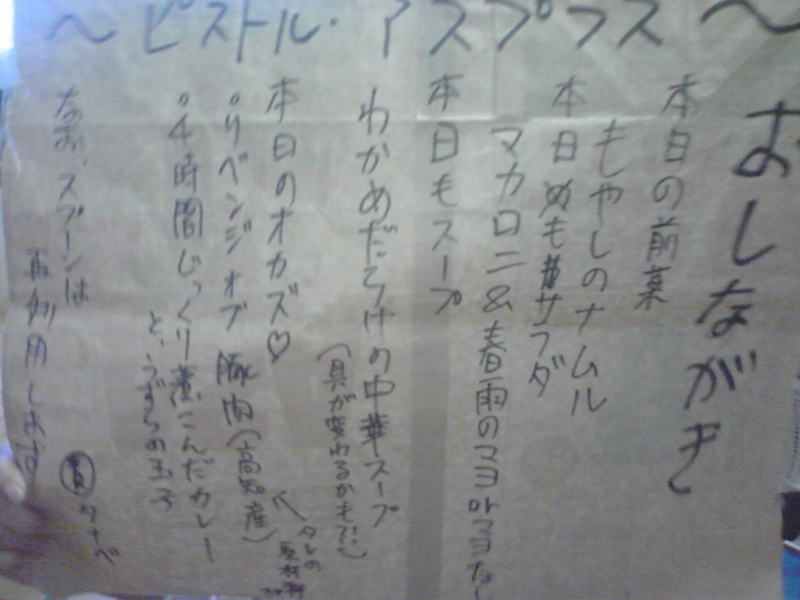 〜ピストル・アスプラス〜
おしながき
本日の前菜
もやしのナムル
本日もサラダ
マカロニ&春雨のマヨorマヨなし
本日もスープ
わかめだらけの中華スープ
(具が変わるかも?!)
本日のオカズ♡
。リベンジオブ豚肉(高知産)
タレの
原材料が
。4時間じっくり煮こんだカレー
と、うずらの玉子
なお、スプーンは
再利用します。
タナベ